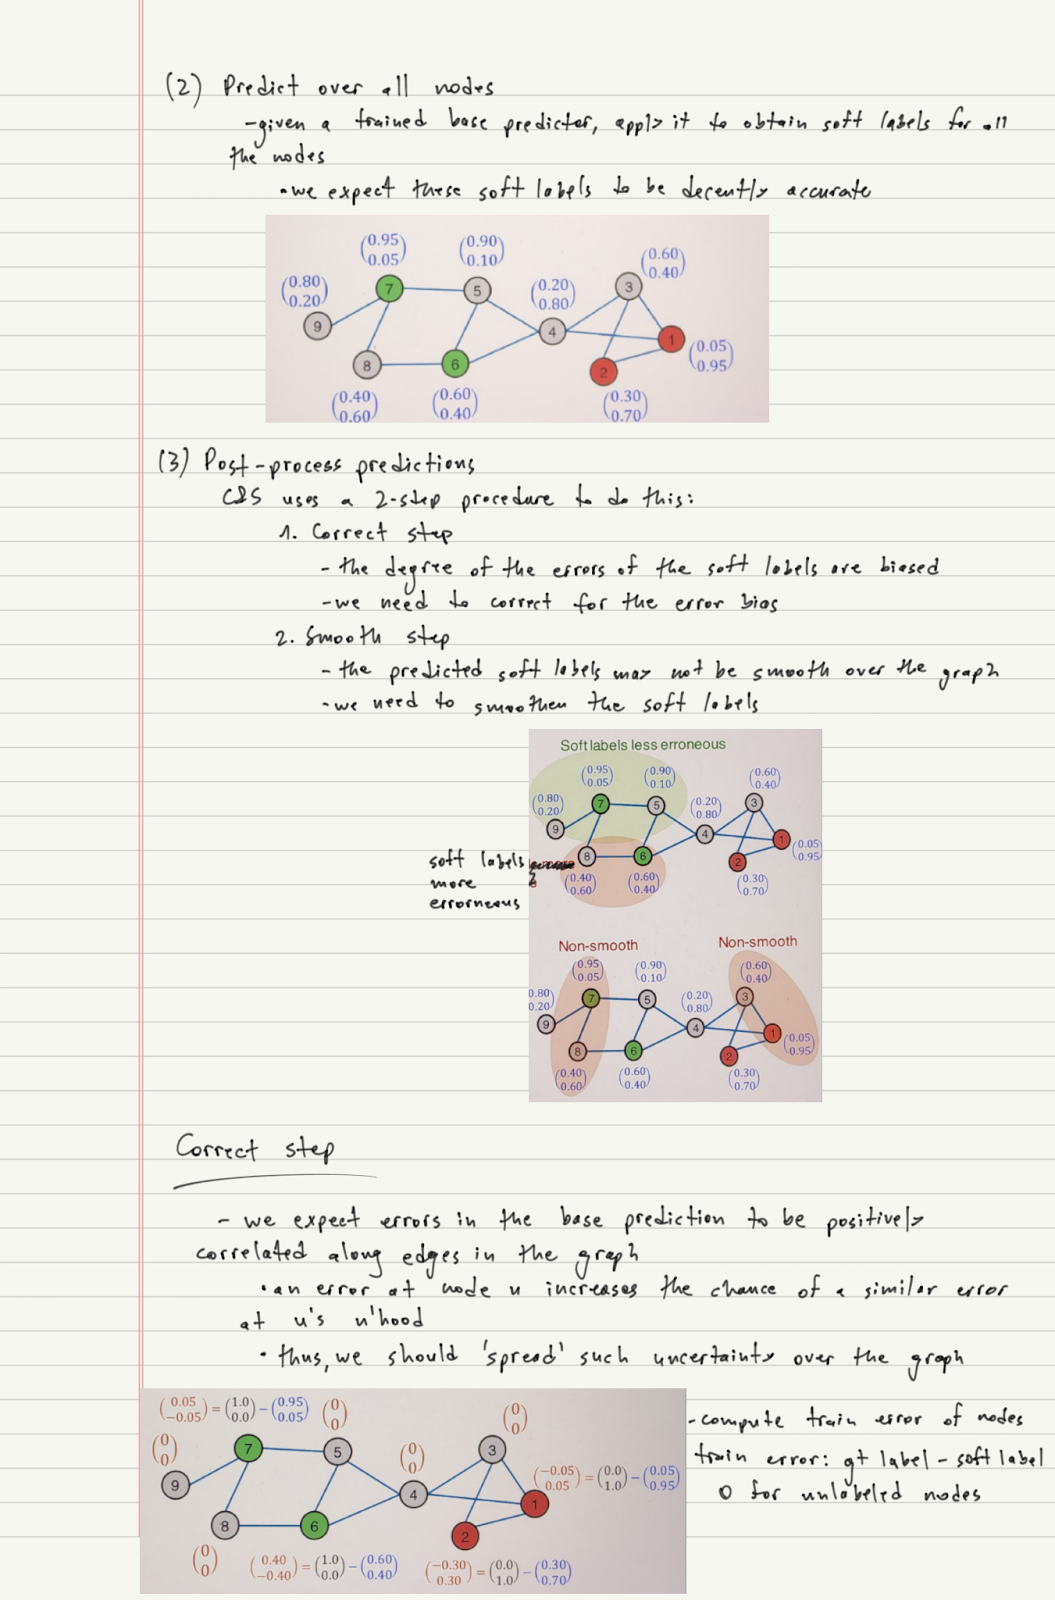 (2) Predict over all nodes
-given a trained base predictor, apply it to obtain soft labels for all
the nodes
•we expect these soft labels to be decently accurate
(0.95 0.05)
(0.90 0.10)
(0.60 0.40)
(0.80 0.20)
(0.20 0.80)
7
5
3
9
4
1
8
6
2
(0.05 0.95)
(0.40 0.60)
(0.60 0.40)
(0.30 0.70)
(3) Post-process predictions
C&S uses a 2-step procedure to do this:
1. Correct step
- the degree of the errors of the soft labels are biased
-we need to correct for the error bias
2. Smooth step
- the predicted soft labels may not be smooth over the graph
-we need to smoothen the soft labels
Soft labels less erroneous
(0.95 0.05)
(0.90 0.10)
(0.60 0.40)
(0.80 0.20)
(0.20 0.80)
7
5
3
9
4
1
(0.05 0.95)
soft labels
more
errorneous
8
6
2
(0.40 0.60)
(0.60 0.40)
(0.30 0.70)
Non-smooth
Non-smooth
(0.95 0.05)
(0.90 0.10)
(0.60 0.40)
0.80 0.20)
(0.20 0.80)
7
5
3
9
4
1
(0.05 0.95)
8
6
2
(0.40 0.60)
(0.60 0.40)
(0.30 0.70)
Correct step
- we expect errors in the base prediction to be positively
correlated along edges in the graph
•an error at node u increases the chance of a similar error
at u's n'hood
• thus, we should 'spread' such uncertainty over the graph
(0.05 -0.05) = (1.0 0.0) - (0.95 0.05)
(0 0)
(0 0)
(0 0)
(0 0)
7
5
3
9
4
1
(-0.05 0.05) = (0.0 1.0) - (0.05 0.95)
8
6
2
(0 0)
(0.40 -0.40) = (1.0 0.0) - (0.60 0.40)
(-0.30 0.30) = (0.0 1.0) - (0.30 0.70)
-compute train error of nodes
train error: gt label - soft label
0 for unlabeled nodes